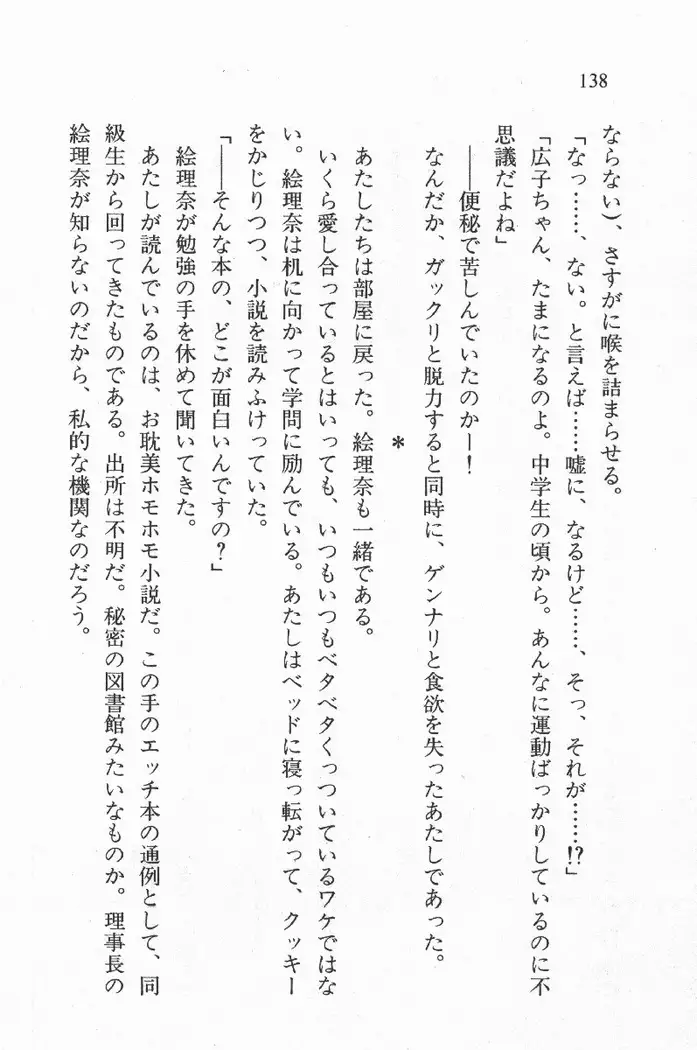 138
ならない)、さすがに喉を詰まらせる。
「なっ……、ない。と言えば……嘘に、なるけど……、そっ、それが……!?」
「広子ちゃん、たまになるのよ。中学生の頃から。あんなに運動ばっかりしているのに不
思議だよね」
――便秘で苦しんでいたのかー!
なんだか、ガックリと脱力すると同時に、ゲンナリと食欲を失ったあたしであった。
*
あたしたちは部屋に戻った。絵理奈も一緒である。
いくら愛し合っているとはいっても、いつもいつもベタベタくっついているワケではな
い。絵理奈は机に向かって学問に励んでいる。あたしはベッドに寝っ転がって、クッキー
をかじりつつ、小説を読みふけっていた。
「――そんな本の、どこが面白いんですの?」
絵理奈が勉強の手を休めて聞いてきた。
あたしが読んでいるのは、お耽美ホモホモ小説だ。この手のエッチ本の通例として、同
級生から回ってきたものである。出所は不明だ。秘密の図書館みたいなものか。理事長の
絵理奈が知らないのだから、私的な機関なのだろう。